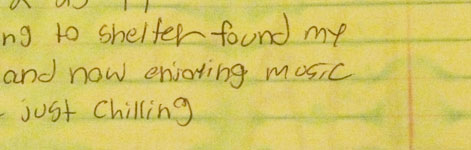 ng to shelter found my
and now enjoying music
- just Chilling